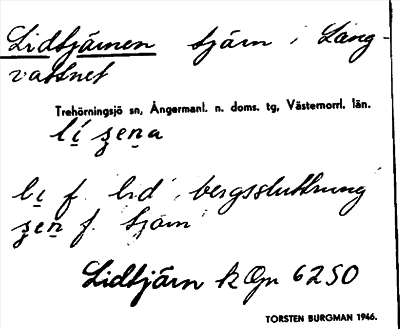 Lidtjärnen tjärn i Lång-
vattnet
Trehörningsjö sn, Ångermanl. n. doms. tg, Västernorrl. län.
lí ʒeṇa
li f. lid, bergssluttning
ʒeṇ f. tjärn
Lidtjärn k Gr 6250
TORSTEN BURGMAN 1946.